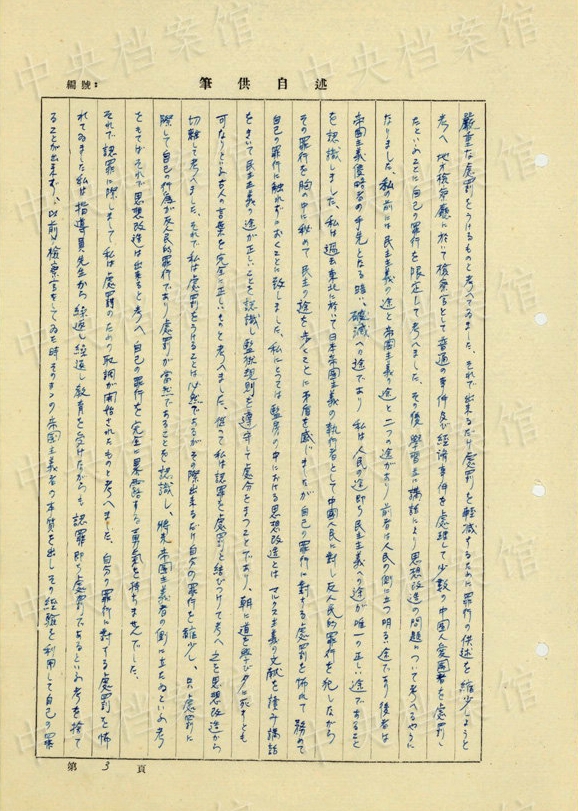 編號:
筆供自述
嚴重な處罰をうけるものと考へてゐました、それで出来るだけ處罰を軽減するために罪行の供述を縮少しようと
考へ 地方検察廳に於いて検察官として普通の事件及び経済事件を處理して少数の中国人愛国者を處罰し
たといふことに自己の罪行を限定して考へました、その後 學習並に講話により思想改造の問題について考へるやうに
なりました、私の前には民主主義の途と帝国主義の途と二つの途があり前者は人民の側に立つ明るい途であり後者は
帝国主義侵略者の手先となる暗い破滅への途であり 私は人民の途即ち民主主義への途が唯一の正しい途であること
を認識しました、私は過去東北に於て日本帝国主義の執行者として中国人民に対し反人民的罪行を犯しながら
その罪行を胸の中に秘めて民主の途を歩くことに矛盾を感じましたが自己の罪行に対する處罰を怖れて 務めて
自己の罪行に触れずにおくことに致しました、私にとっては監房の中における思想改造とはマルクス主義の文献を読み講話
をきいて民主主義の途が正しいことを認識し監獄規則を遵守して處分をまつことであり、朝に道を學び夕に死すとも
可なりといふ古人の言葉を完全に正しいものと考へました、従って私は認罪を處罰と結びつけて考へ 之を思想改造から
切離して考へました、それで私は處罰をうけることは必然であるがその際出来るだけ自分の罪行を縮少し、只處罰に
際して自己の行為が反人民的罪行であり處罰が當然であることを認識し、將来帝国主義者の側に立たぬといふ考
をもてばそれで思想改造は出来ると考へ、自己の罪行を完全に暴露する勇氣を持ちませんでした、
それで認罪に際しまして私は處罰のための取調が開始されたものと考へました、自分の罪行に対する處罰を怖
れてゐました私は指導員先生から繰返し繰返し教育を受けながらも 認罪即ち處罰であるといふ考を捨て
ることが出来ず、以前検察官をしてゐた時そのまゝの帝国主義者の本質を出しその経験を利用して自己の罪
第 3 頁
中央档案馆